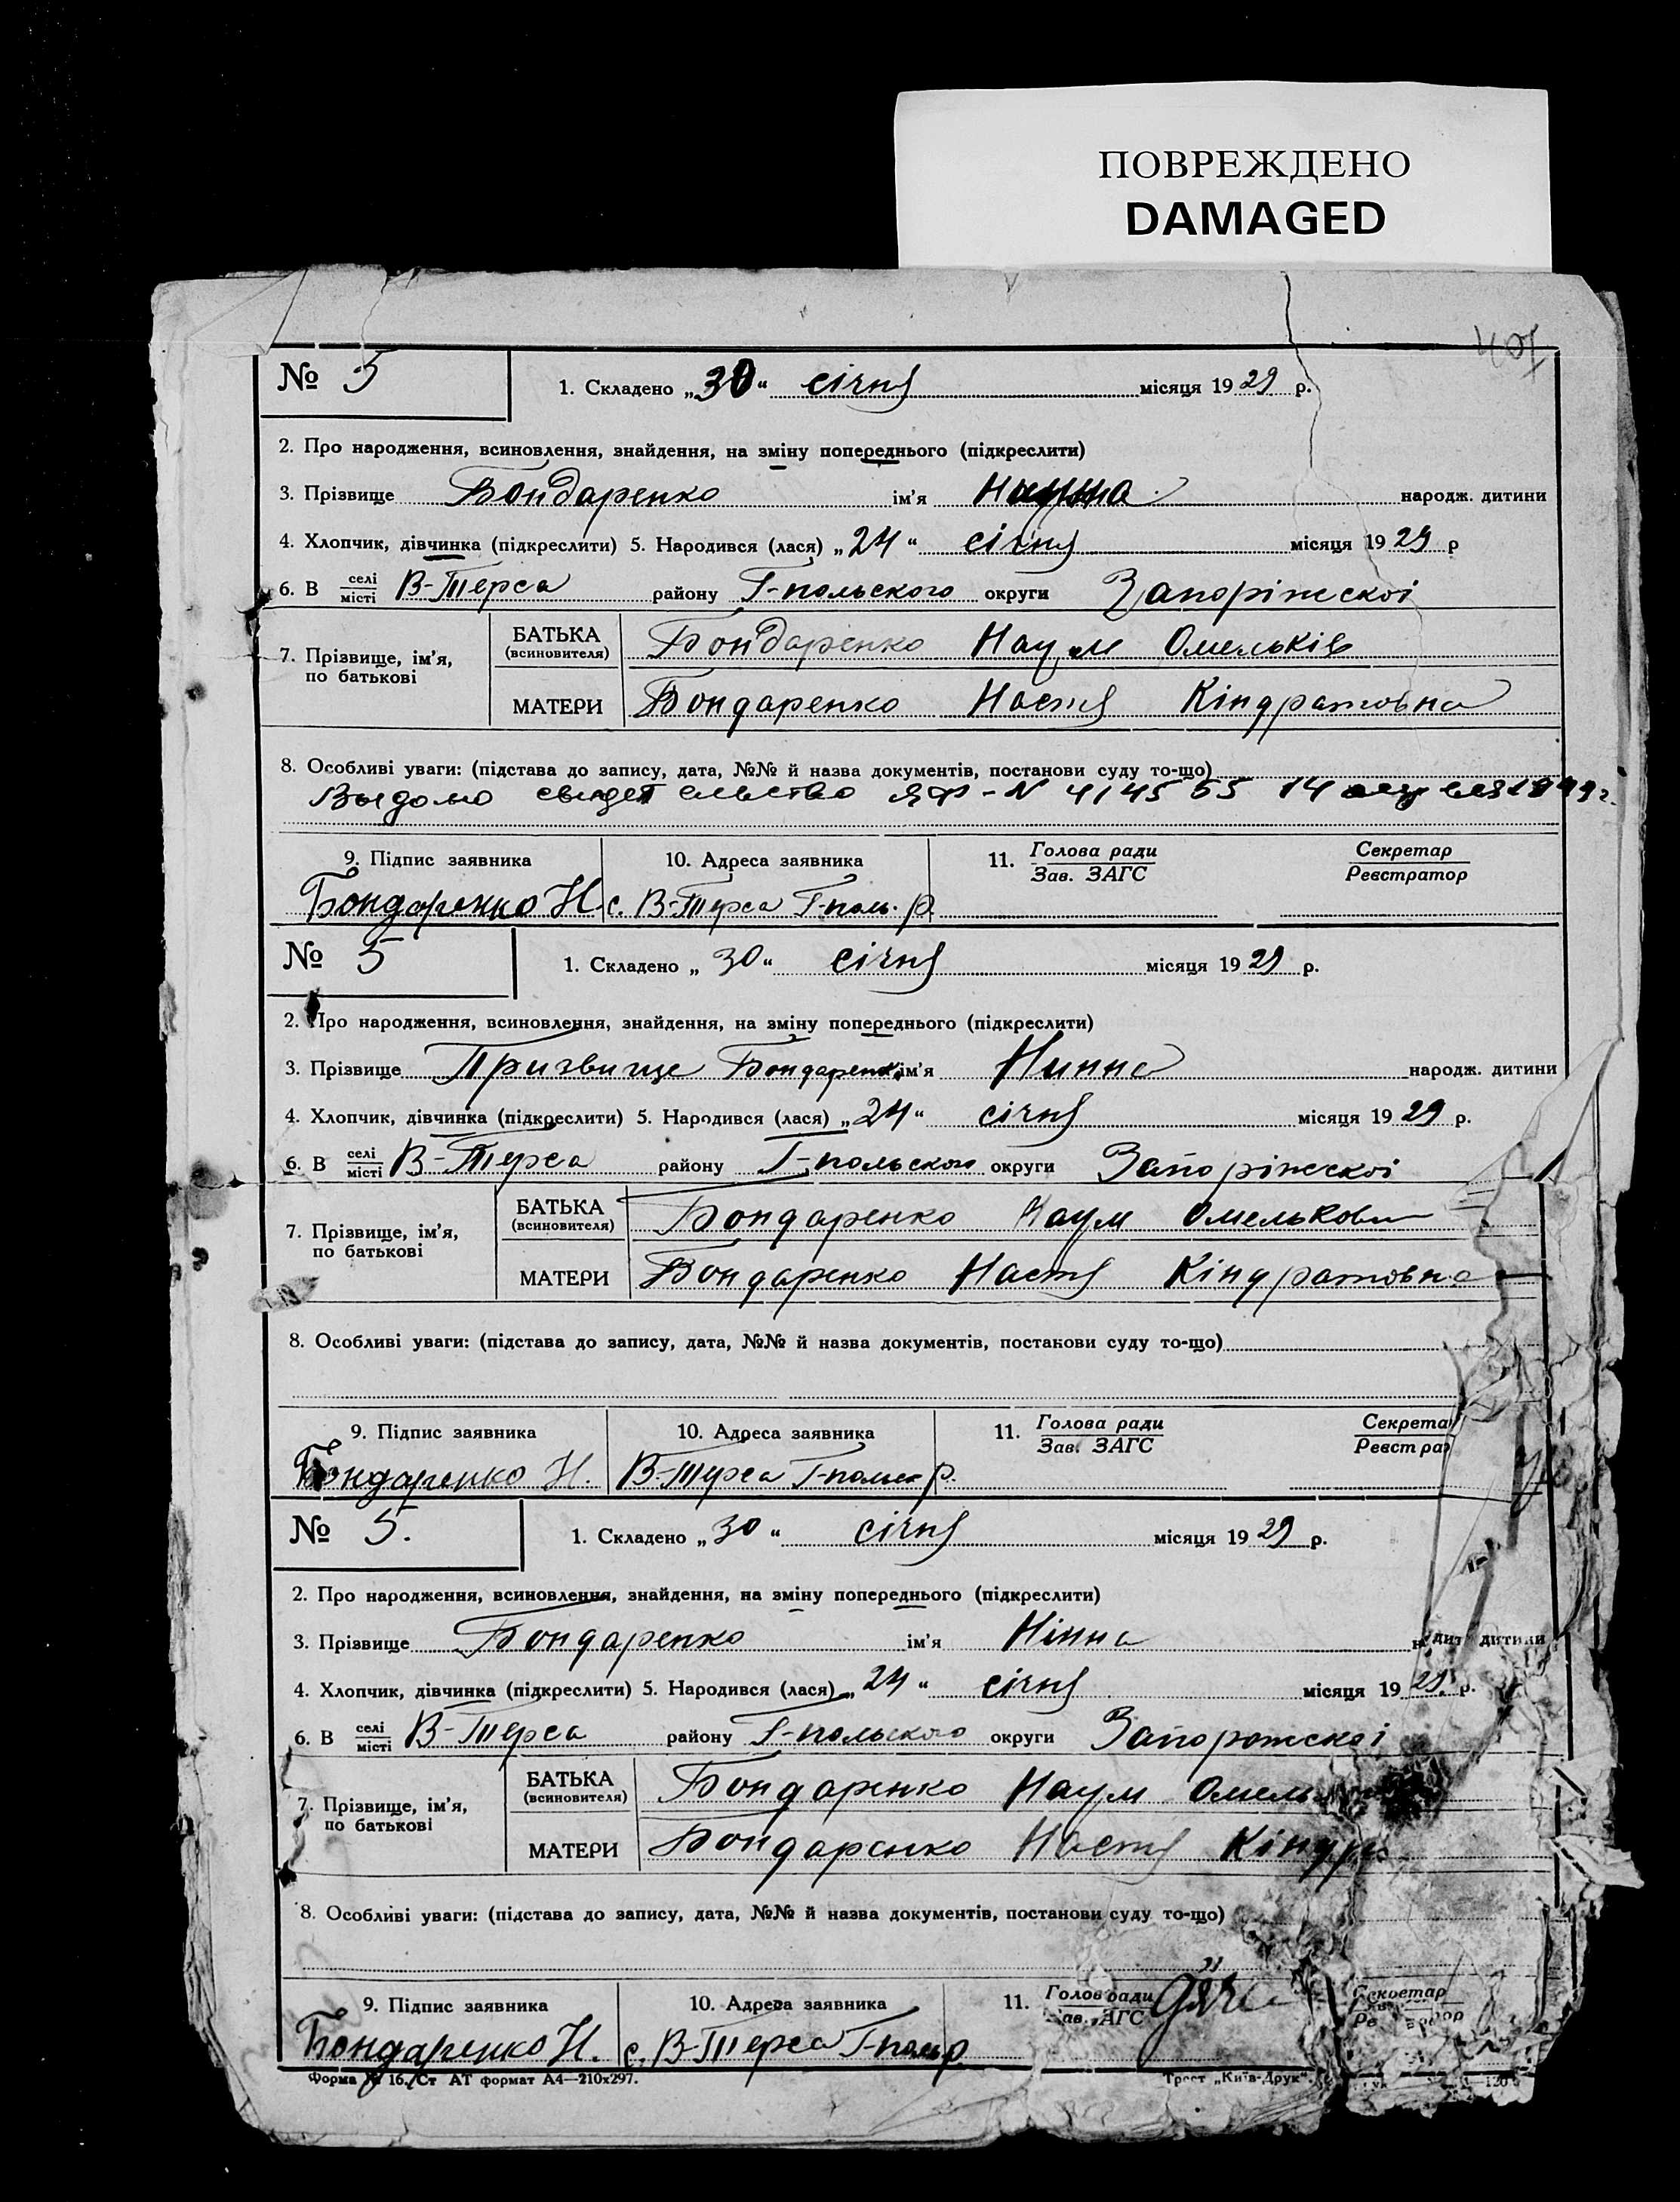 ПОВРЕЖДЕНО
DAMAGED
№ 5 1. Складено „30“ січня місяця 1929 р.
2. Про народження, всиновлення, знайдення, на зміну попереднього (підкреслити)
3. Прізвище Бондаренко ім'я народж. дитини
4. Хлопчик, дівчинка (підкреслити) 5. Народився (лася) „24“ січня місяця 1929 р
6. В селі/місті В-Терса району Г-польского округи Запоріжскоі
7. Прізвище, ім'я, по батькові
БАТЬКА (всиновителя) Бондаренко Наум Омельків
МАТЕРИ Бондаренко Настя Кіндратовна
8. Особливі уваги: (підстава до запису, дата, №№ й назва документів, постанови суду то-що)
Выдоно свидетельство ЯФ-N 414555 14
9. Підпис заявника 10. Адреса заявника 11. Голова ради/Зав. ЗАГС Секретар/Реєстратор
Бондаренко Н. с. В-Терса Г-поль. р.
№ 5 1. Складено „30“ січня місяця 1929 р.
2. Про народження, всиновлення, знайдення, на зміну попереднього (підкреслити)
3. Прізвище Призвище Бондаренко ім'я Нинна народж. дитини
4. Хлопчик, дівчинка (підкреслити) 5. Народився (лася) „24“ січня місяця 1929 р.
6. В селі/місті В-Терса району Г-польского округи Запоріжскоі
7. Прізвище, ім'я, по батькові
БАТЬКА (всиновителя) Бондаренко Наум Омелькови
МАТЕРИ Бондаренко Настя Кіндратовна
8. Особливі уваги: (підстава до запису, дата, №№ й назва документів, постанови суду то-що)
9. Підпис заявника 10. Адреса заявника 11. Голова ради/Зав. ЗАГС Секрета/Реєстра
Бондаренко Н. В-Терса Г-польс р.
№ 5. 1. Складено „30“ січня місяця 1929 р.
2. Про народження, всиновлення, знайдення, на зміну попереднього (підкреслити)
3. Прізвище Бондаренко ім'я Нінна дитини
4. Хлопчик, дівчинка (підкреслити) 5. Народився (лася) „24“ січня місяця 1929. р.
6. В селі/місті В-Терса району Г-польского округи Запорожскоі
7. Прізвище, ім'я, по батькові
БАТЬКА (всиновителя) Бондаренко Наум Омель
МАТЕРИ Бондаренко Настя Кіндра
8. Особливі уваги: (підстава до запису, дата, №№ й назва документів, постанови суду то-що)
9. Підпис заявника 10. Адреса заявника 11. Голов ради/Зав. ЗАГС Секретар
Бондаренко Н. с. В-Терса Г-поль р
Форма № 16. Ст АТ формат А4—210х297. Трест „Київ-Друк“.